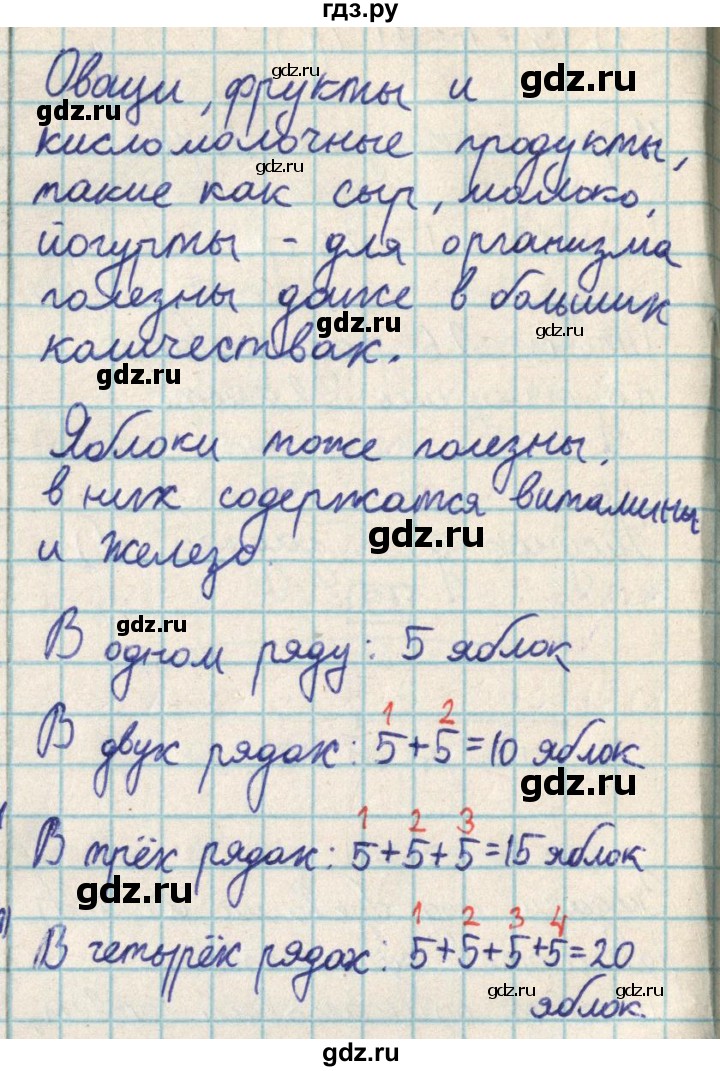 гдз.ру
Овощи, фрукты и
gdz.ru
gdz.ru
gdz.ru
кисломолочные продукты,
gdz.ru
такие как сыр, молоко,
йогурты - для организма
полезны даже в больших
gdz.ru
gdz.ru
количествах.
gdz.ru
Яблоки тоже полезны,
в них содержатся витамины
gdz.ru
и железо
gdz.ru
В одном ряду: 5 яблок
1 2
В двух рядах: 5+5=10 яблок
gdz.ru
1 2 3
В трёх рядах: 5+5+5=15 яблок
gdz.ru
1 2 3 4
В четырёх рядах: 5+5+5+5=20
gdz.ru
gdz.ru
яблок.
gdz.ru